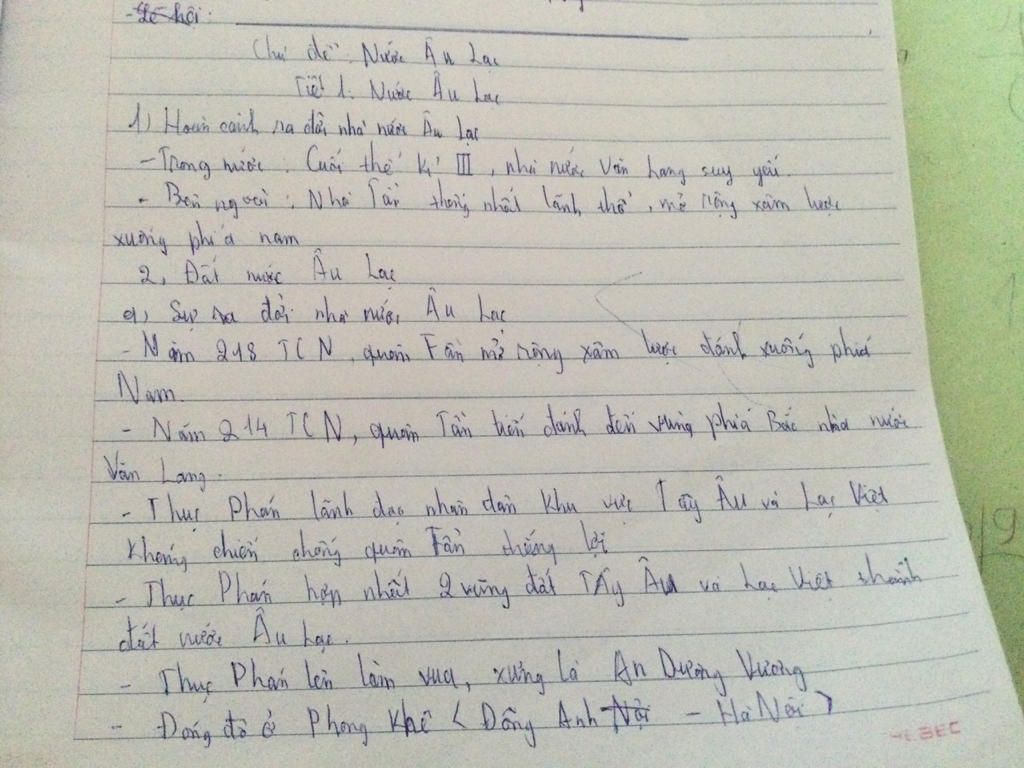 - Lễ hội :
Chủ đề : Nước Âu Lạc
Tiết 1: Nước Âu Lạc
1) Hoàn cảnh ra đời nhà nước Âu Lạc
- Trong nước : Cuối thế kỉ III, nhà nước Văn Lang suy yếu.
- Bên ngoài : Nhà Tần thống nhất lãnh thổ, mở rộng xâm lược
xuống phía nam
2, Đất nước Âu Lạc
a, Sự ra đời nhà nước Âu Lạc
- Năm 218 TCN, quân Tần mở rộng xâm lược đánh xuống phía
Nam.
- Năm 214 TCN, quân Tần tiến đánh đến vùng phía Bắc nhà nước
Văn Lang.
- Thục Phán lãnh đạo nhân dân khu vực Tây Âu và Lạc Việt
kháng chiến chống quân Tần thắng lợi
- Thục Phán hợp nhất 2 vùng đất Tây Âu và Lạc Việt thành
đất nước Âu Lạc.
- Thục Phán lên làm vua, xưng là An Dương Vương
- Đóng đô ở Phong Khê < Đông Anh Nội - Hà Nội >